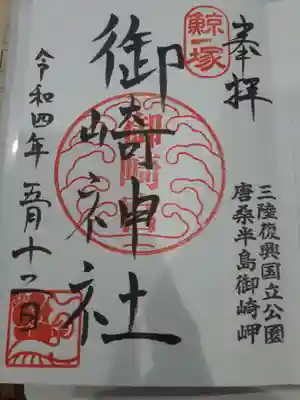 奉拝
三陸復興国立公園
唐桑半島御崎岬
鯨塚
御崎神社
御崎
令和四年五月十二日